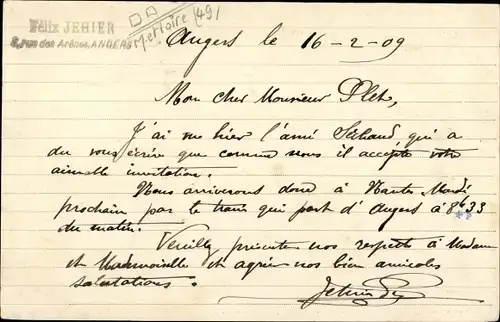 Félix JEHIER
2, rue des Arènes, ANGERS
Angers le 16-2-09
Mon cher Monsieur Plet,
J'ai vu hier l'ami qui a
du vous écrire que comme nous il accepte votre
aimable invitation.
Nous arriverons donc à Mardi
prochain par le train qui part d'Angers à 8h33
du matin.
Veuillez présenter nos respects à Madame
et Mademoiselle et agréer nos bien amicales
salutations.